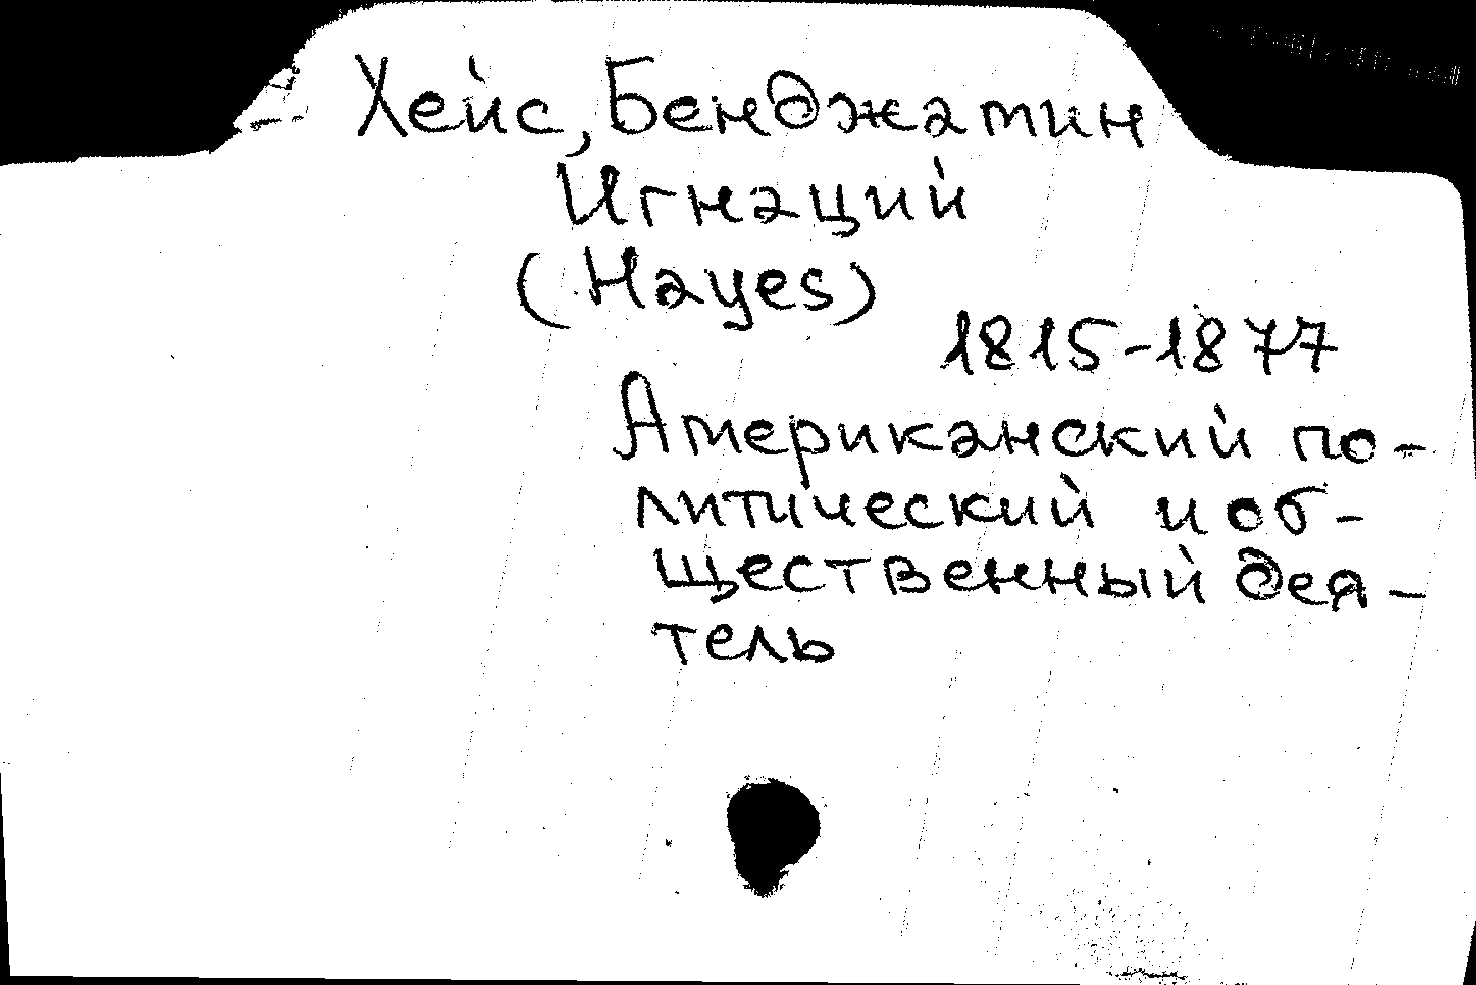 Хейс, Бенджамин
Игнаций
(Hayes)
1815-1877
Американский по-
литический и об-
щественный дея-
тель